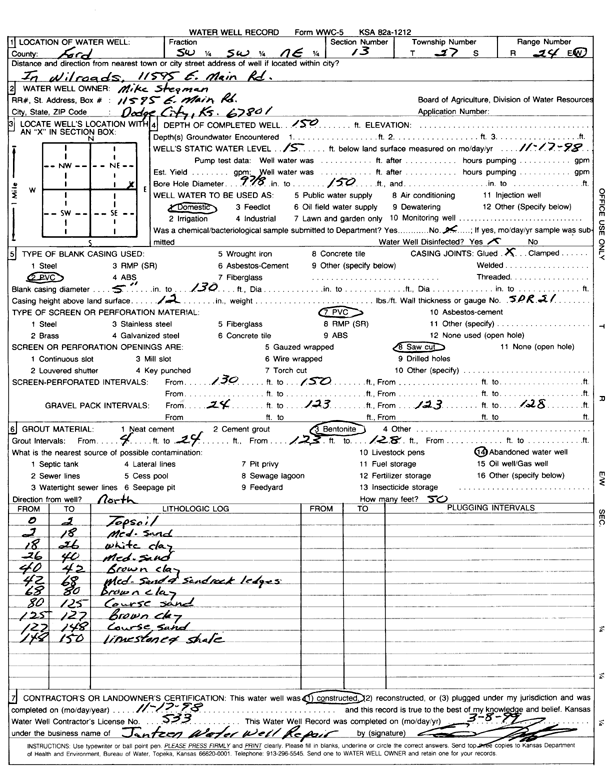 WATER WELL RECORD Form WWC-5 KSA 82a-1212
1 LOCATION OF WATER WELL: Fraction Section Number Township Number Range Number
County: Ford SW ¼ SW ¼ NE ¼ 13 T 27 S R 24 E/W
Distance and direction from nearest town or city street address of well if located within city?
In Wilroads, 11595 E. Main Rd.
2 WATER WELL OWNER: Mike Stegman
RR#, St. Address, Box #: 11595 E. Main Rd. Board of Agriculture, Division of Water Resources
City, State, ZIP Code : Dodge City, Ks. 67801 Application Number:
3 LOCATE WELL'S LOCATION WITH AN "X" IN SECTION BOX:
N
NW NE
W X E
SW SE
S
1 Mile
4 DEPTH OF COMPLETED WELL 150 ft. ELEVATION:
Depth(s) Groundwater Encountered 1. ft. 2. ft. 3. ft.
WELL'S STATIC WATER LEVEL 15 ft. below land surface measured on mo/day/yr 11-17-98
Pump test data: Well water was ft. after hours pumping gpm
Est. Yield gpm; Well water was ft. after hours pumping gpm
Bore Hole Diameter 9 7/8 in. to 150 ft., and in. to ft.
WELL WATER TO BE USED AS: 5 Public water supply 8 Air conditioning 11 Injection well
1 Domestic 3 Feedlot 6 Oil field water supply 9 Dewatering 12 Other (Specify below)
2 Irrigation 4 Industrial 7 Lawn and garden only 10 Monitoring well
Was a chemical/bacteriological sample submitted to Department? Yes No X ; If yes, mo/day/yr sample was submitted Water Well Disinfected? Yes X No
5 TYPE OF BLANK CASING USED: 5 Wrought iron 8 Concrete tile CASING JOINTS: Glued X Clamped
1 Steel 3 RMP (SR) 6 Asbestos-Cement 9 Other (specify below) Welded
2 PVC 4 ABS 7 Fiberglass Threaded
Blank casing diameter 5" in. to 130 ft., Dia in. to ft., Dia in. to ft.
Casing height above land surface 12 in., weight lbs./ft. Wall thickness or gauge No. SDR 21
TYPE OF SCREEN OR PERFORATION MATERIAL: 7 PVC 10 Asbestos-cement
1 Steel 3 Stainless steel 5 Fiberglass 8 RMP (SR) 11 Other (specify)
2 Brass 4 Galvanized steel 6 Concrete tile 9 ABS 12 None used (open hole)
SCREEN OR PERFORATION OPENINGS ARE: 5 Gauzed wrapped 8 Saw cut 11 None (open hole)
1 Continuous slot 3 Mill slot 6 Wire wrapped 9 Drilled holes
2 Louvered shutter 4 Key punched 7 Torch cut 10 Other (specify)
SCREEN-PERFORATED INTERVALS: From 130 ft. to 150 ft., From ft. to ft.
From ft. to ft., From ft. to ft.
GRAVEL PACK INTERVALS: From 24 ft. to 123 ft., From 123 ft. to 128 ft.
From ft. to ft., From ft. to ft.
6 GROUT MATERIAL: 1 Neat cement 2 Cement grout 3 Bentonite 4 Other
Grout Intervals: From 4 ft. to 24 ft., From 123 ft. to 128 ft., From ft. to ft.
What is the nearest source of possible contamination: 10 Livestock pens 14 Abandoned water well
1 Septic tank 4 Lateral lines 7 Pit privy 11 Fuel storage 15 Oil well/Gas well
2 Sewer lines 5 Cess pool 8 Sewage lagoon 12 Fertilizer storage 16 Other (specify below)
3 Watertight sewer lines 6 Seepage pit 9 Feedyard 13 Insecticide storage
Direction from well? North How many feet? 50
FROM TO LITHOLOGIC LOG FROM TO PLUGGING INTERVALS
0 2 Topsoil
2 18 Med. sand
18 26 white clay
26 40 Med. Sand
40 42 Brown clay
42 68 Med. Sand & Sandrock ledges
68 80 brown clay
80 125 Course sand
125 127 Brown clay
127 148 Course sand
148 150 limestone & shale
7 CONTRACTOR'S OR LANDOWNER'S CERTIFICATION: This water well was (1) constructed, (2) reconstructed, or (3) plugged under my jurisdiction and was
completed on (mo/day/year) 11-17-98 and this record is true to the best of my knowledge and belief. Kansas
Water Well Contractor's License No. 533 This Water Well Record was completed on (mo/day/yr) 3-8-99
under the business name of Jantzen Water Well Repair by (signature)
INSTRUCTIONS: Use typewriter or ball point pen. PLEASE PRESS FIRMLY and PRINT clearly. Please fill in blanks, underline or circle the correct answers. Send top three copies to Kansas Department
of Health and Environment, Bureau of Water, Topeka, Kansas 66620-0001. Telephone: 913-296-5545. Send one to WATER WELL OWNER and retain one for your records.
OFFICE USE ONLY
T
R
E/W
SEC.
¼
¼
¼